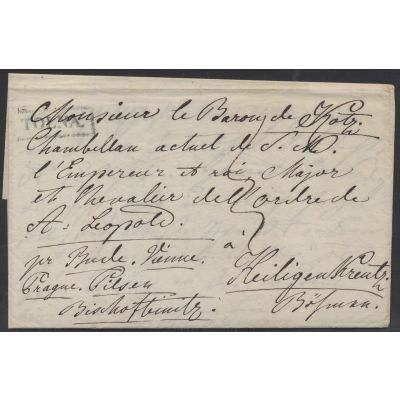 TOLNA
Monsieur le Baron de Kotz
Chambellan actuel de S. M.
l'Empereur et roi, Major
et Chevalier de l'ordre de
St. Leopold.
à
pr Bude. Vienne.
Prague. Pilsen
Bischofteinitz.
Heiligen Kreutz
Böhmen.